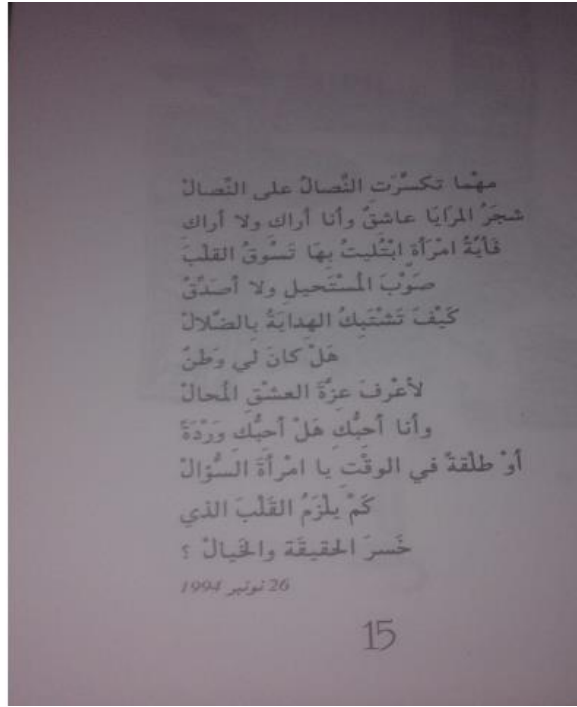 مهْما تكسَّرَتِ النَّصالُ على النَّصالْ
شجَرُ المَرَايَا عاشقٌ وأنا أراك ولا أراك
فَأيَّةُ امْرَأةٍ ابْتُلِيتُ بِهَا تَسُوقُ القلْبَ
صَوْبَ المُسْتَحيلِ ولا أصَدِّقُ
كَيْفَ تَشْتَبِكُ الهِدايَةُ بِالضَّلالْ
هَلْ كانَ لي وَطنٌ
لأعْرفَ عِزَّةَ العِشْقِ المُحالْ
وأنا أحبُّكِ هَلْ أحبُّكِ وَرْدَةً
أوْ طلْقةً في الوقْتِ يا امْرأةَ السُّؤالْ
كَمْ يلْزَمُ القَلْبَ الذي
خَسرَ الحقيقَة والخَيالْ ؟
26 نونبر 1994
15